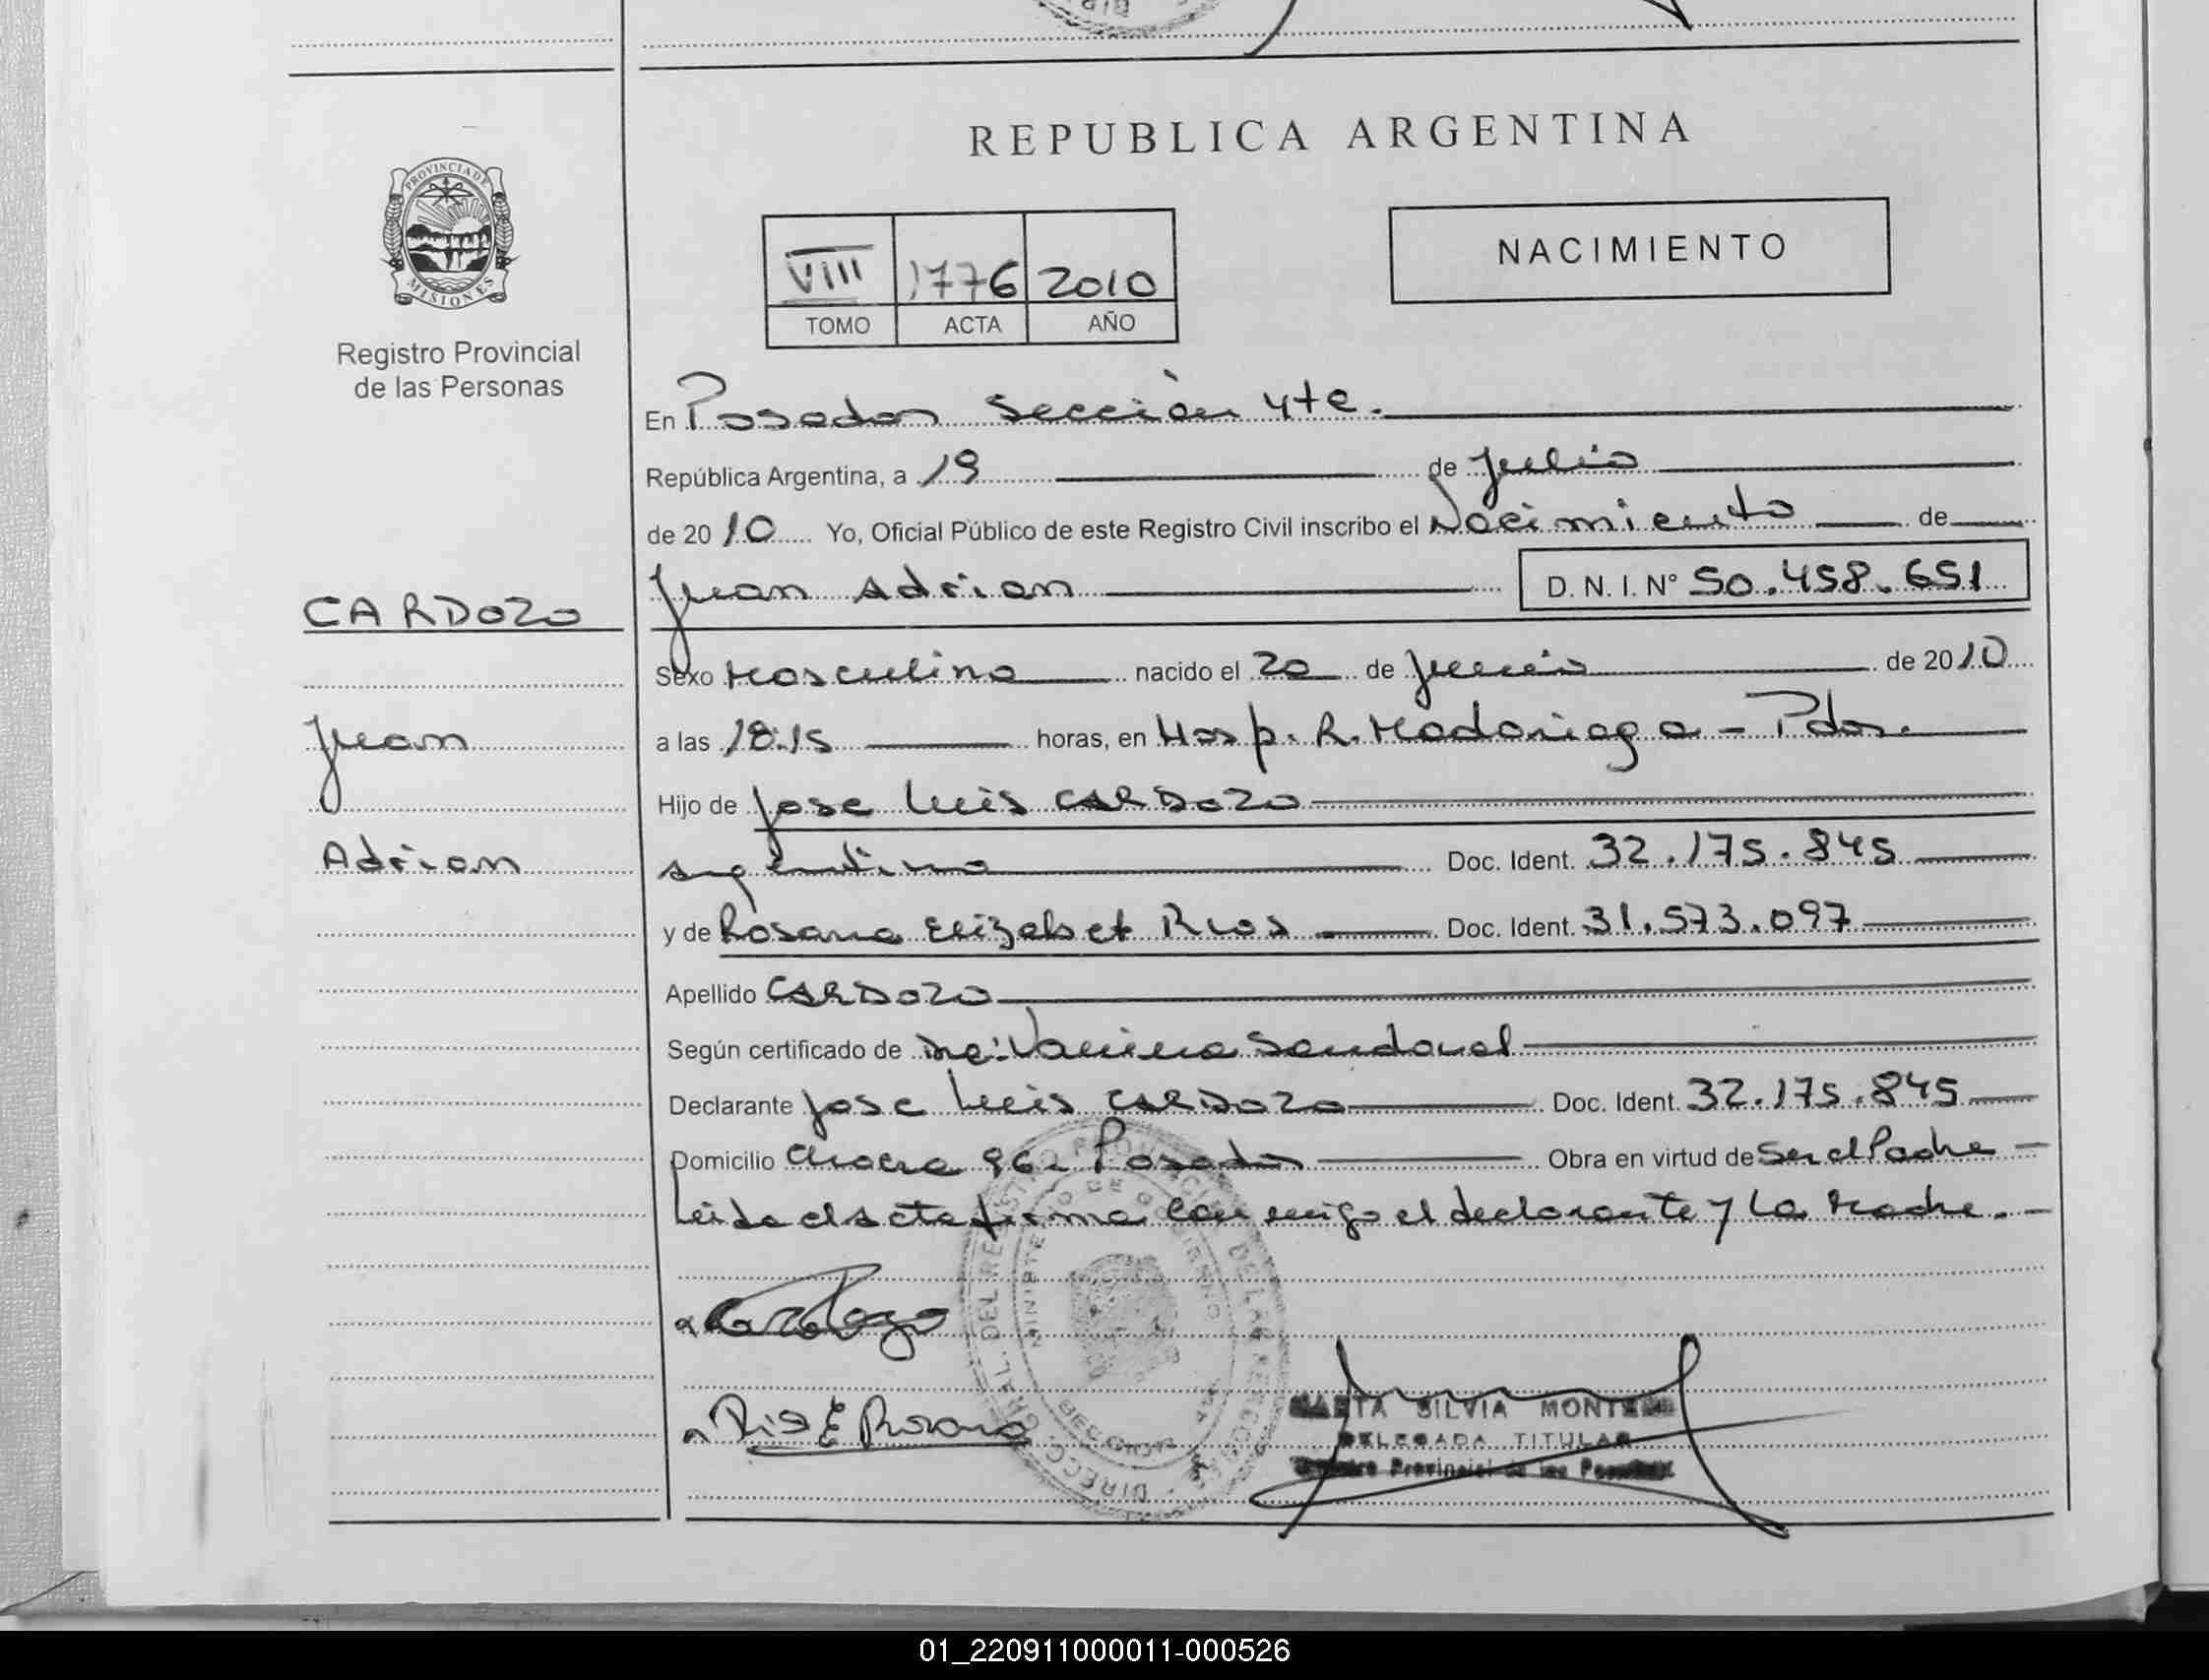 REPUBLICA ARGENTINA
PROVINCIA DE
MISIONES
Registro Provincial
de las Personas
NACIMIENTO
VIII 1776 2010
TOMO ACTA AÑO
En Posadas Sección 4ta.
República Argentina, a 19 de Julio
de 2010 Yo, Oficial Público de este Registro Civil inscribo el Nacimiento de
CARDOZO
Juan Adrian D. N. I. N° 50.458.651
Sexo Masculino nacido el 20 de Junio de 2010
Juan
a las 18:15 horas, en Hosp. R. Madariaga - Pdas.
Hijo de Jose Luis CARDOZO
Adrian
argentino Doc. Ident. 32.175.845
y de Rosana Elizabet Rios Doc. Ident. 31.573.097
Apellido CARDOZO
Según certificado de Vanina Sandoval
Declarante Jose Luis CARDOZO Doc. Ident. 32.175.845
Domicilio Chacra Posadas Obra en virtud de Ser el Padre
Leida el acta firma con migo el declarante y La Madre.-
Rios E Rosana
MARTA SILVIA MONTE
DELEGADA TITULAR
Registro Provincial de las Personas
01_220911000011-000526